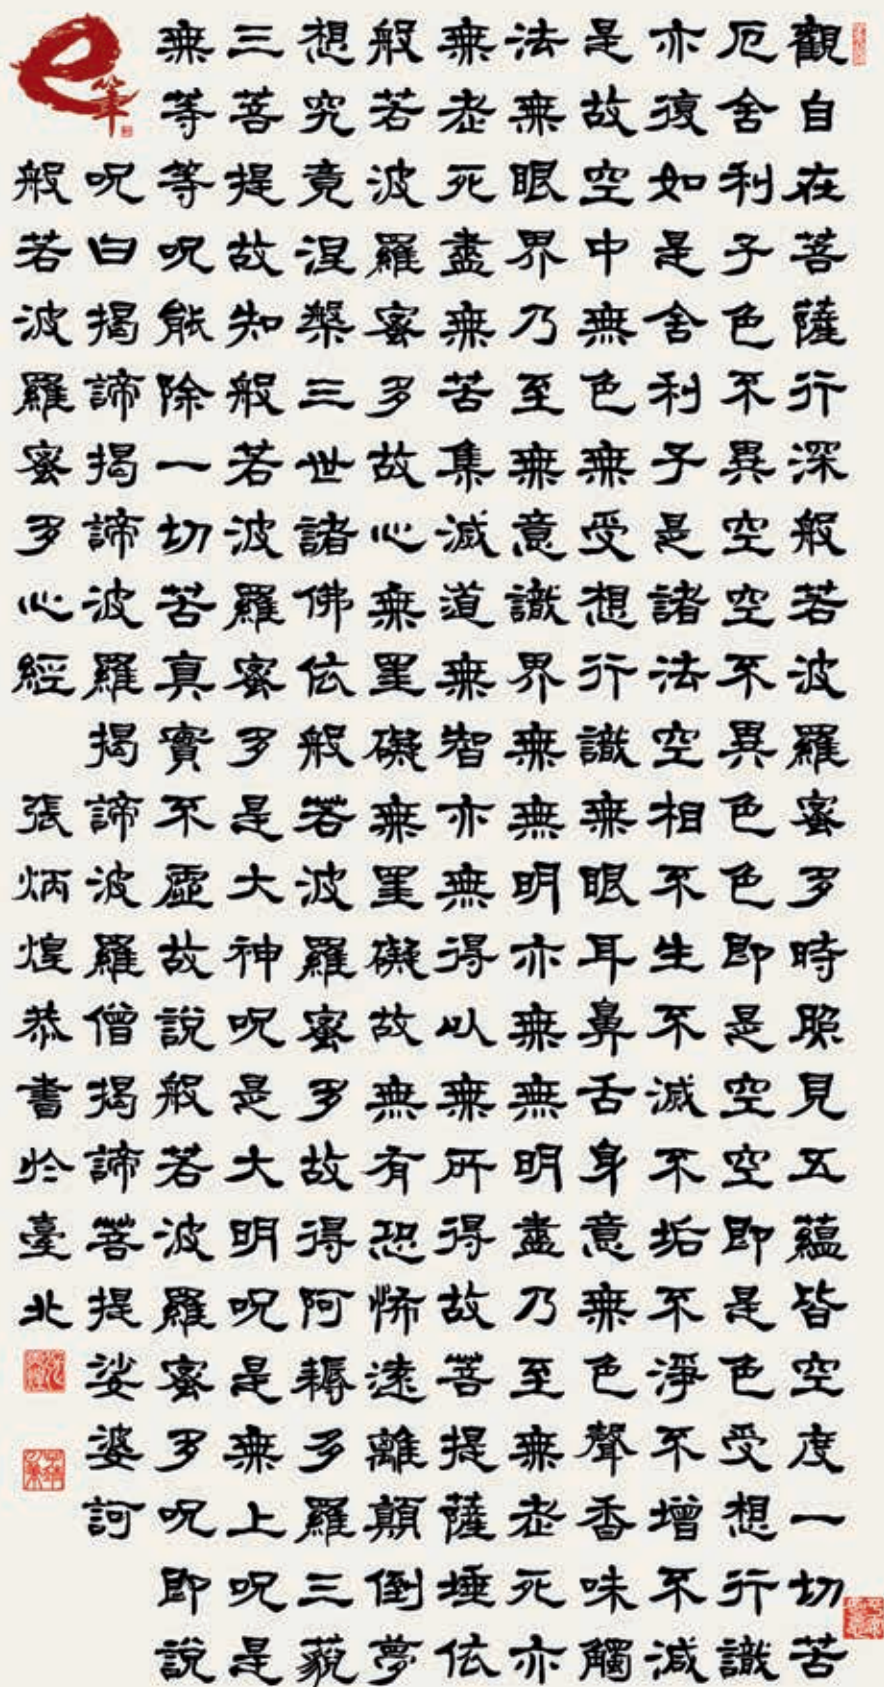 觀自在菩薩行深般若波羅蜜多時照見五蘊皆空度一切苦
厄舍利子色不異空空不異色色即是空空即是色受想行識
亦復如是舍利子是諸法空相不生不滅不垢不淨不增不減
是故空中無色無受想行識無眼耳鼻舌身意無色聲香味觸
法無眼界乃至無意識界無無明亦無無明盡乃至無老死亦
無老死盡無苦集滅道無智亦無得以無所得故菩提薩埵依
般若波羅蜜多故心無罣礙無罣礙故無有恐怖遠離顛倒夢
想究竟涅槃三世諸佛依般若波羅蜜多故得阿耨多羅三藐
三菩提故知般若波羅蜜多是大神呪是大明呪是無上呪是
無等等呪能除一切苦真實不虛故說般若波羅蜜多呪即說
呪曰揭諦揭諦波羅揭諦波羅僧揭諦菩提娑婆訶
般若波羅蜜多心經 張炳煌恭書於臺北
e筆